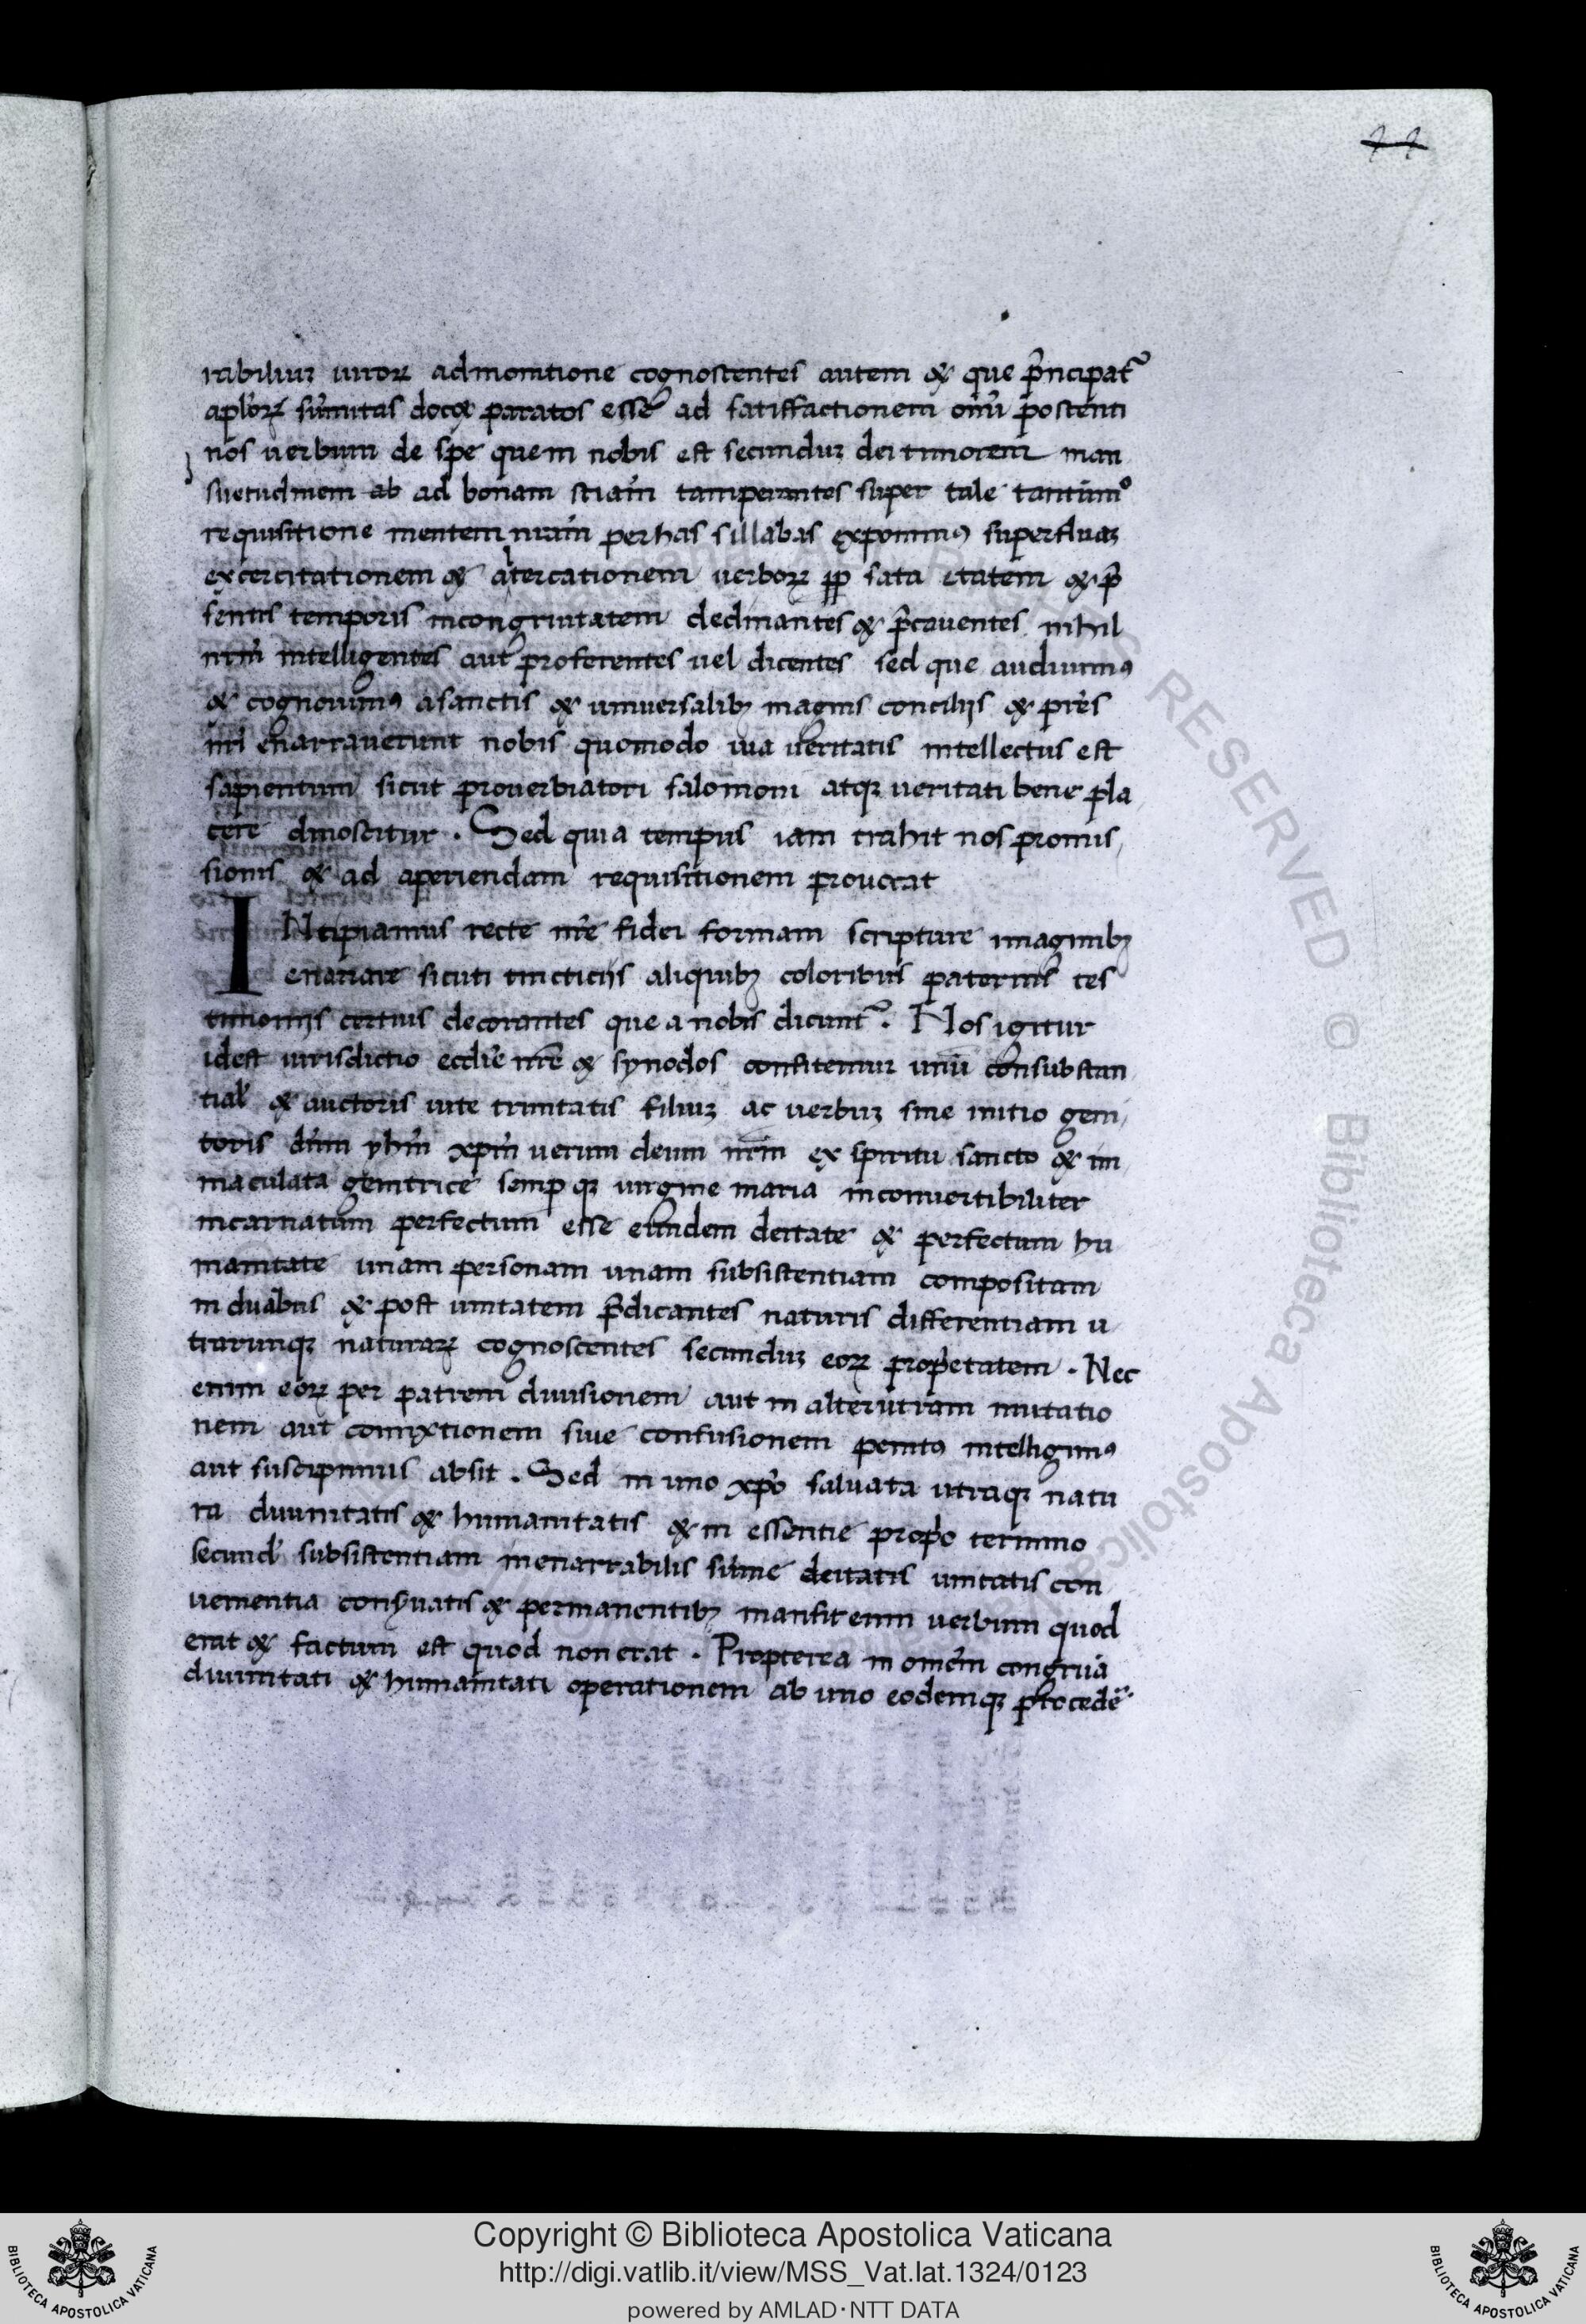 rabiliuʒ uiroꝝ admonitione cognoscentes autem & que p̄ncipat᷑
apl'oꝝ sūmitas docꝫ paratos esse ad satiffactionem oīu᷑ p̄oscenti
nos uerbum de spe quem nobis est secunduʒ dei timorem man
suetudinem ab ad bonam sciam̄ tamperantes super tale tantūmº
requisitione mentem nr̄am per has sillabas exponimꝰ superfluaʒ
excercitationem & atercationem uerboꝝ ꝓp sata etatem & p̄
sentis temporis incongruitatem declinantes & p̄cauentes nihil
nr̄m intelligentes aut proferentes uel dicentes sed que audiuimꝰ
& cognouimꝰ a sanctis & uniuersalibʒ magnis concilijs & pr̄es
nr̄i enarrauerunt nobis quomodo uia ueritatis intellectus est
sapientum sicut prouerbiatori salomoni atqꝫ ueritati bene pla
cere dinoscitur . Sed quia tempus iam trahit nos promis
sionis & ad aperiendam requisitionem prouocat
INcipiamus recte nr̄e fidei formam scripture imaginibʒ
enarrare sicuti tincticijs aliquibʒ coloribus paternis tes
timonijs certius decorantes que a nobis dicunt᷑ . Nos igitur
idest iurisdictio eccl'ie nr̄e & synodos confitemur unū consubstan
tial' & auctoris uite trinitatis filiuʒ ac uerbuʒ sine initio geni
toris dn̄m yhm̄ xpm̄ uerum deum nr̄m ex spiritu sancto & im
maculata genitrice semp qꝫ uirgine maria inconuertibiliter
incarnatum perfectum esse eundem deitate & perfectum hu
manitate unam personam unam subsistentiam compositam
in duabus & post unitatem p̄dicantes naturis differentiam u
trarunqꝫ naturaꝝ cognoscentes secunduʒ eoꝝ propetatem . Nec
enim eoꝝ per patrem diuisionem aut in alterutram mutatio
nem aut comixtionem siue confusionem penitꝰ intelligimꝰ
aut suscipimus absit . Sed in uno xpo᷑ saluata utraqꝫ natu
ra diuinitatis & humanitatis & in essentie prop'o termino
secund' subsistentiam inenarrabilis sūme deitatis unitatis con
uenientia conſ̄uatis & permanentibʒ mansit enim uerbum quod
erat & factum est quod non erat . Propterea in omēm congrua
diuinitati & humanitati operationem ab uno eodemqꝫ procede᷑
Copyright © Biblioteca Apostolica Vaticana
http://digi.vatlib.it/view/MSS_Vat.lat.1324/0123
powered by AMLAD·NTT DATA